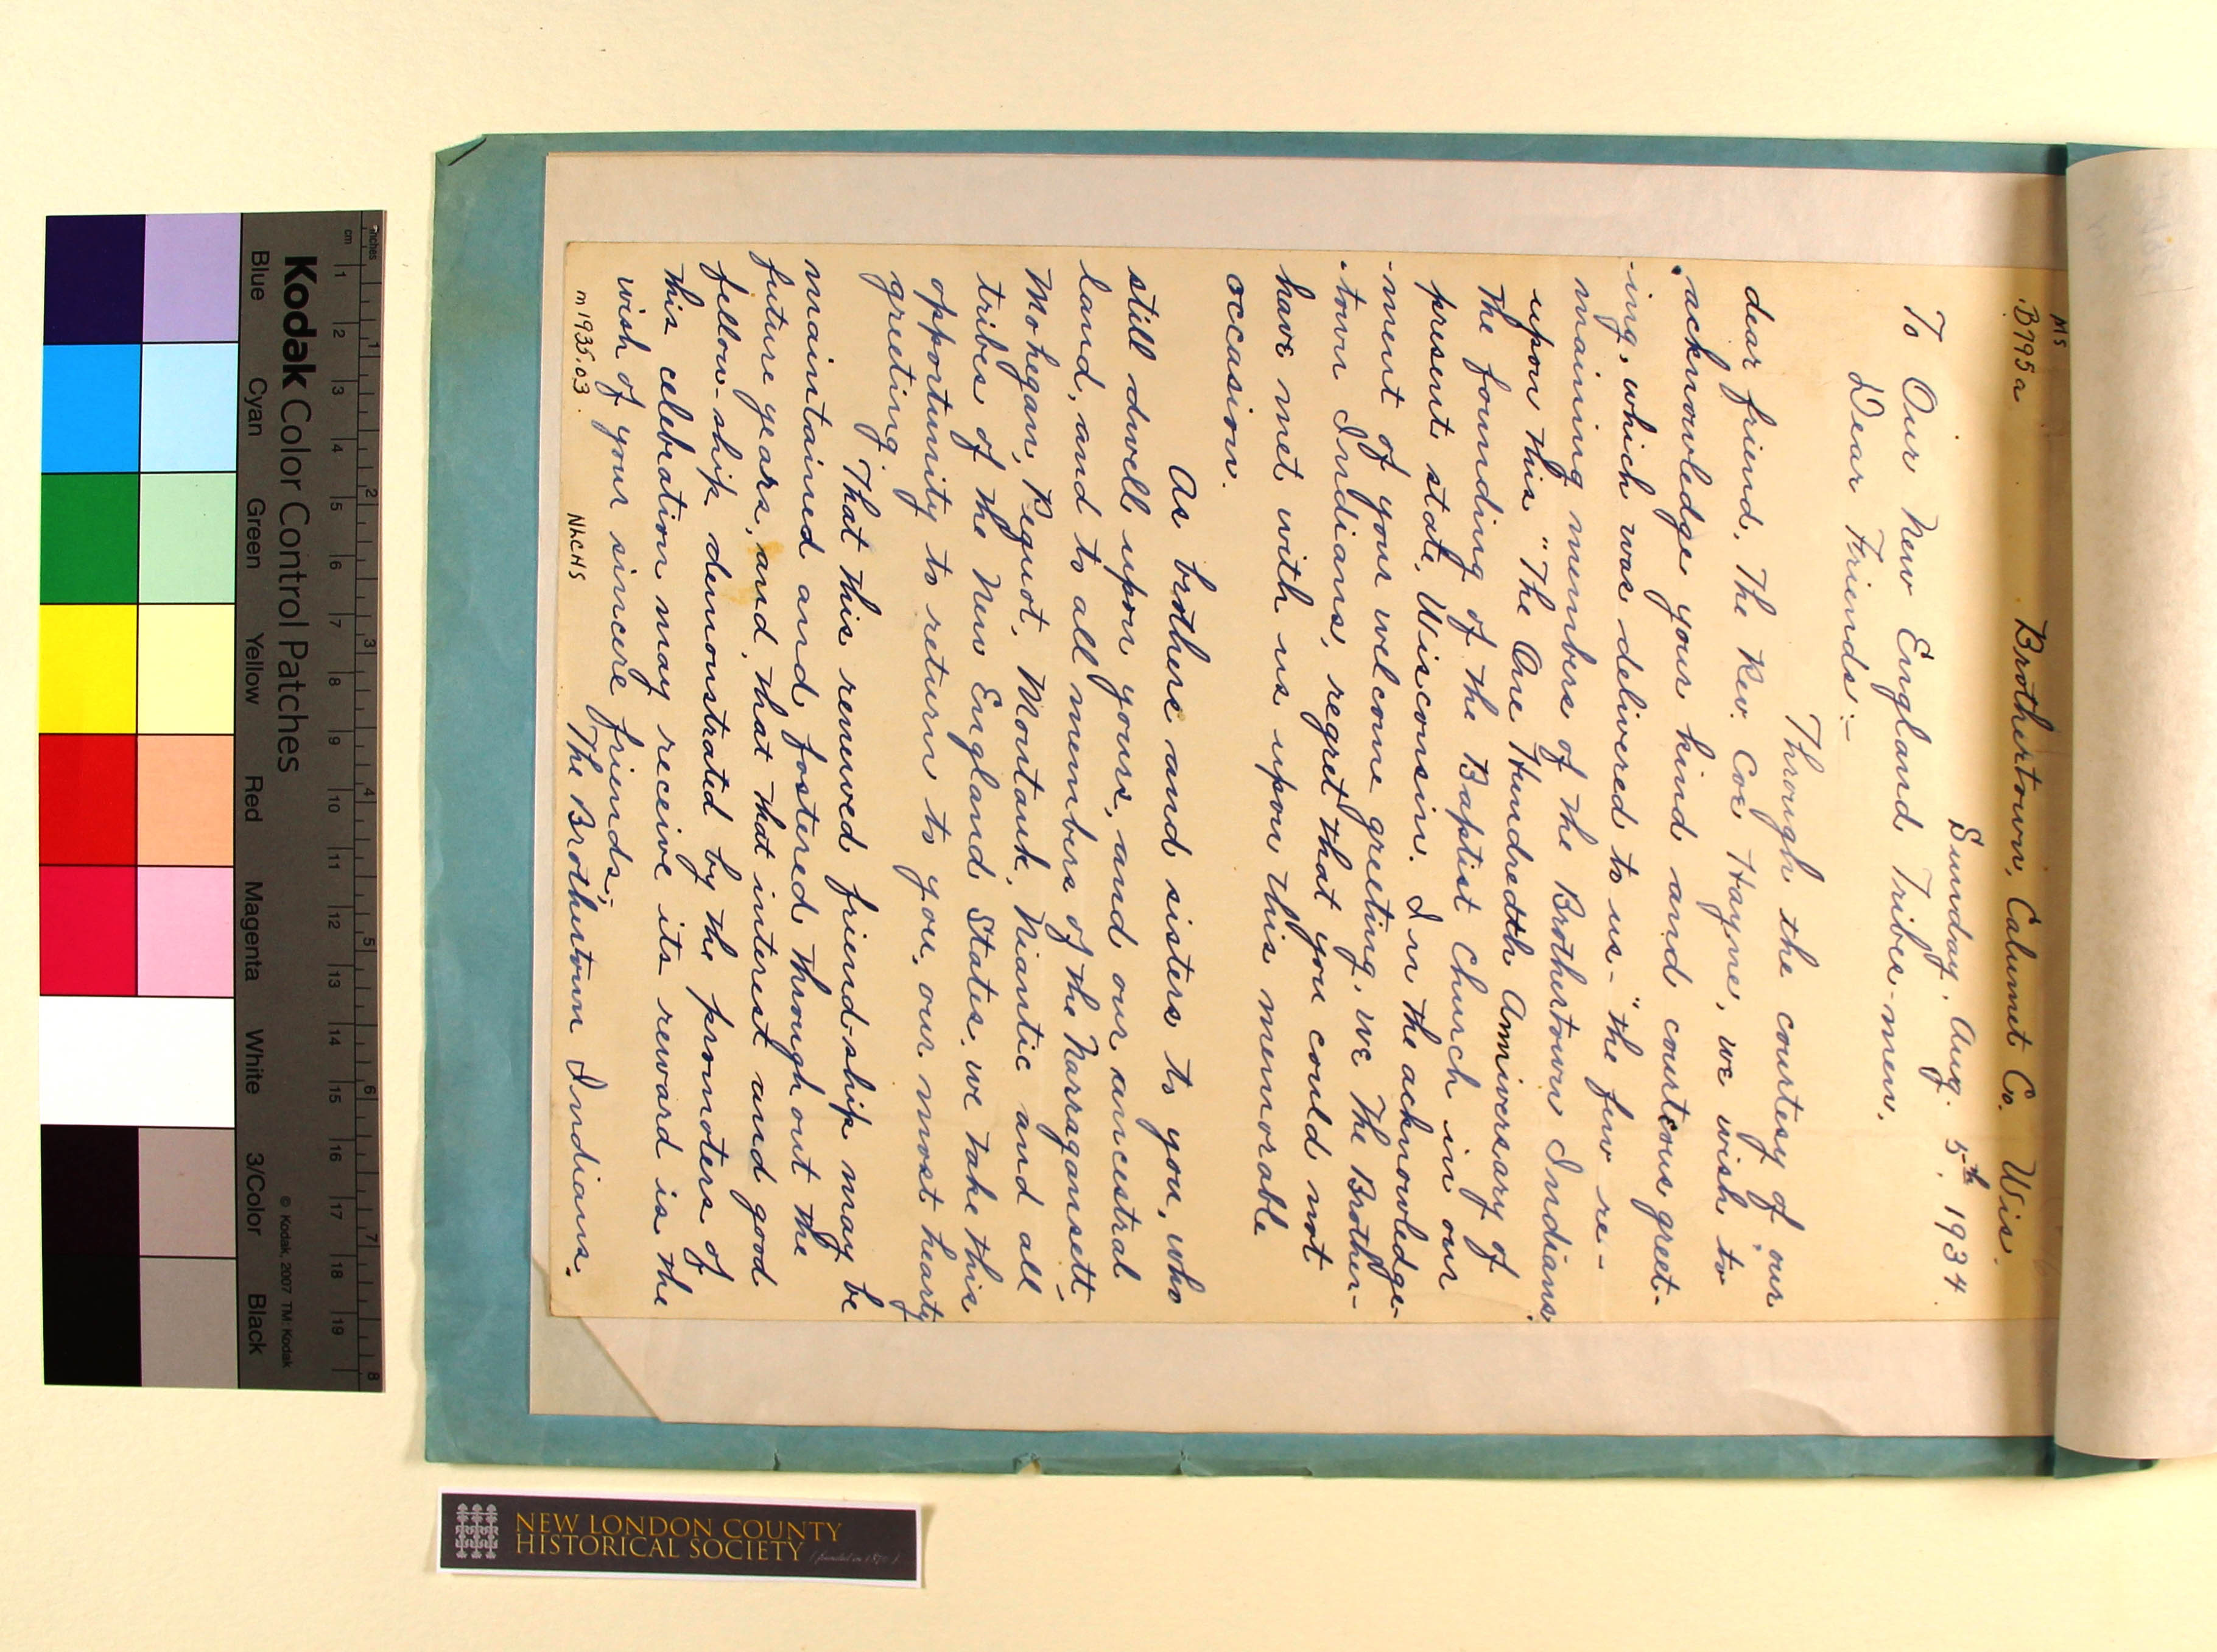 Ms
B795a
Brothertown, Calumet Co. Wis.
Sunday, Aug. 5th. 1934.
To Our New England Tribes-men.
Dear Friends:-
Through the courtesy of our
dear friend, The Rev. Coe Hayne, we wish to
acknowledge your kind and courteous greet-
-ing, which was delivered to us- "the few re-
maining members of the Brothertown Indians,
upon this "The One Hundredth Anniversary of
the founding of the Baptist Church in our
present state, Wisconsin. In the acknowledge-
-ment of your welcome greeting, we The Brother-
-town Indians, regret that you could not
have met with us upon this memorable
occasion.
As brothers and sisters to you, who
still dwell upon yours, and our ancestral
land, and to all members of the Narragansett,
Mohegan, Pequot, Montauk, Niantic and all
tribes of the New England States, we take this
opportunity to return to you, our most hearty
greeting.
That this renewed friend-ship may be
maintained and fostered through out the
future years, and, that that interest and good
fellow-ship demonstrated by the promoters of
this celebration may receive its reward is the
wish of your sincere friends;-
The Brothertown Indians.
m1935.03.
NLCHS
Kodak Color Control Patches
© Kodak, 2007 TM: Kodak
Blue Cyan Green Yellow Red Magenta White 3/Color Black
inches 1 2 3 4 5 6 7 8
cm 1 2 3 4 5 6 7 8 9 10 11 12 13 14 15 16 17 18 19
NEW LONDON COUNTY
HISTORICAL SOCIETY